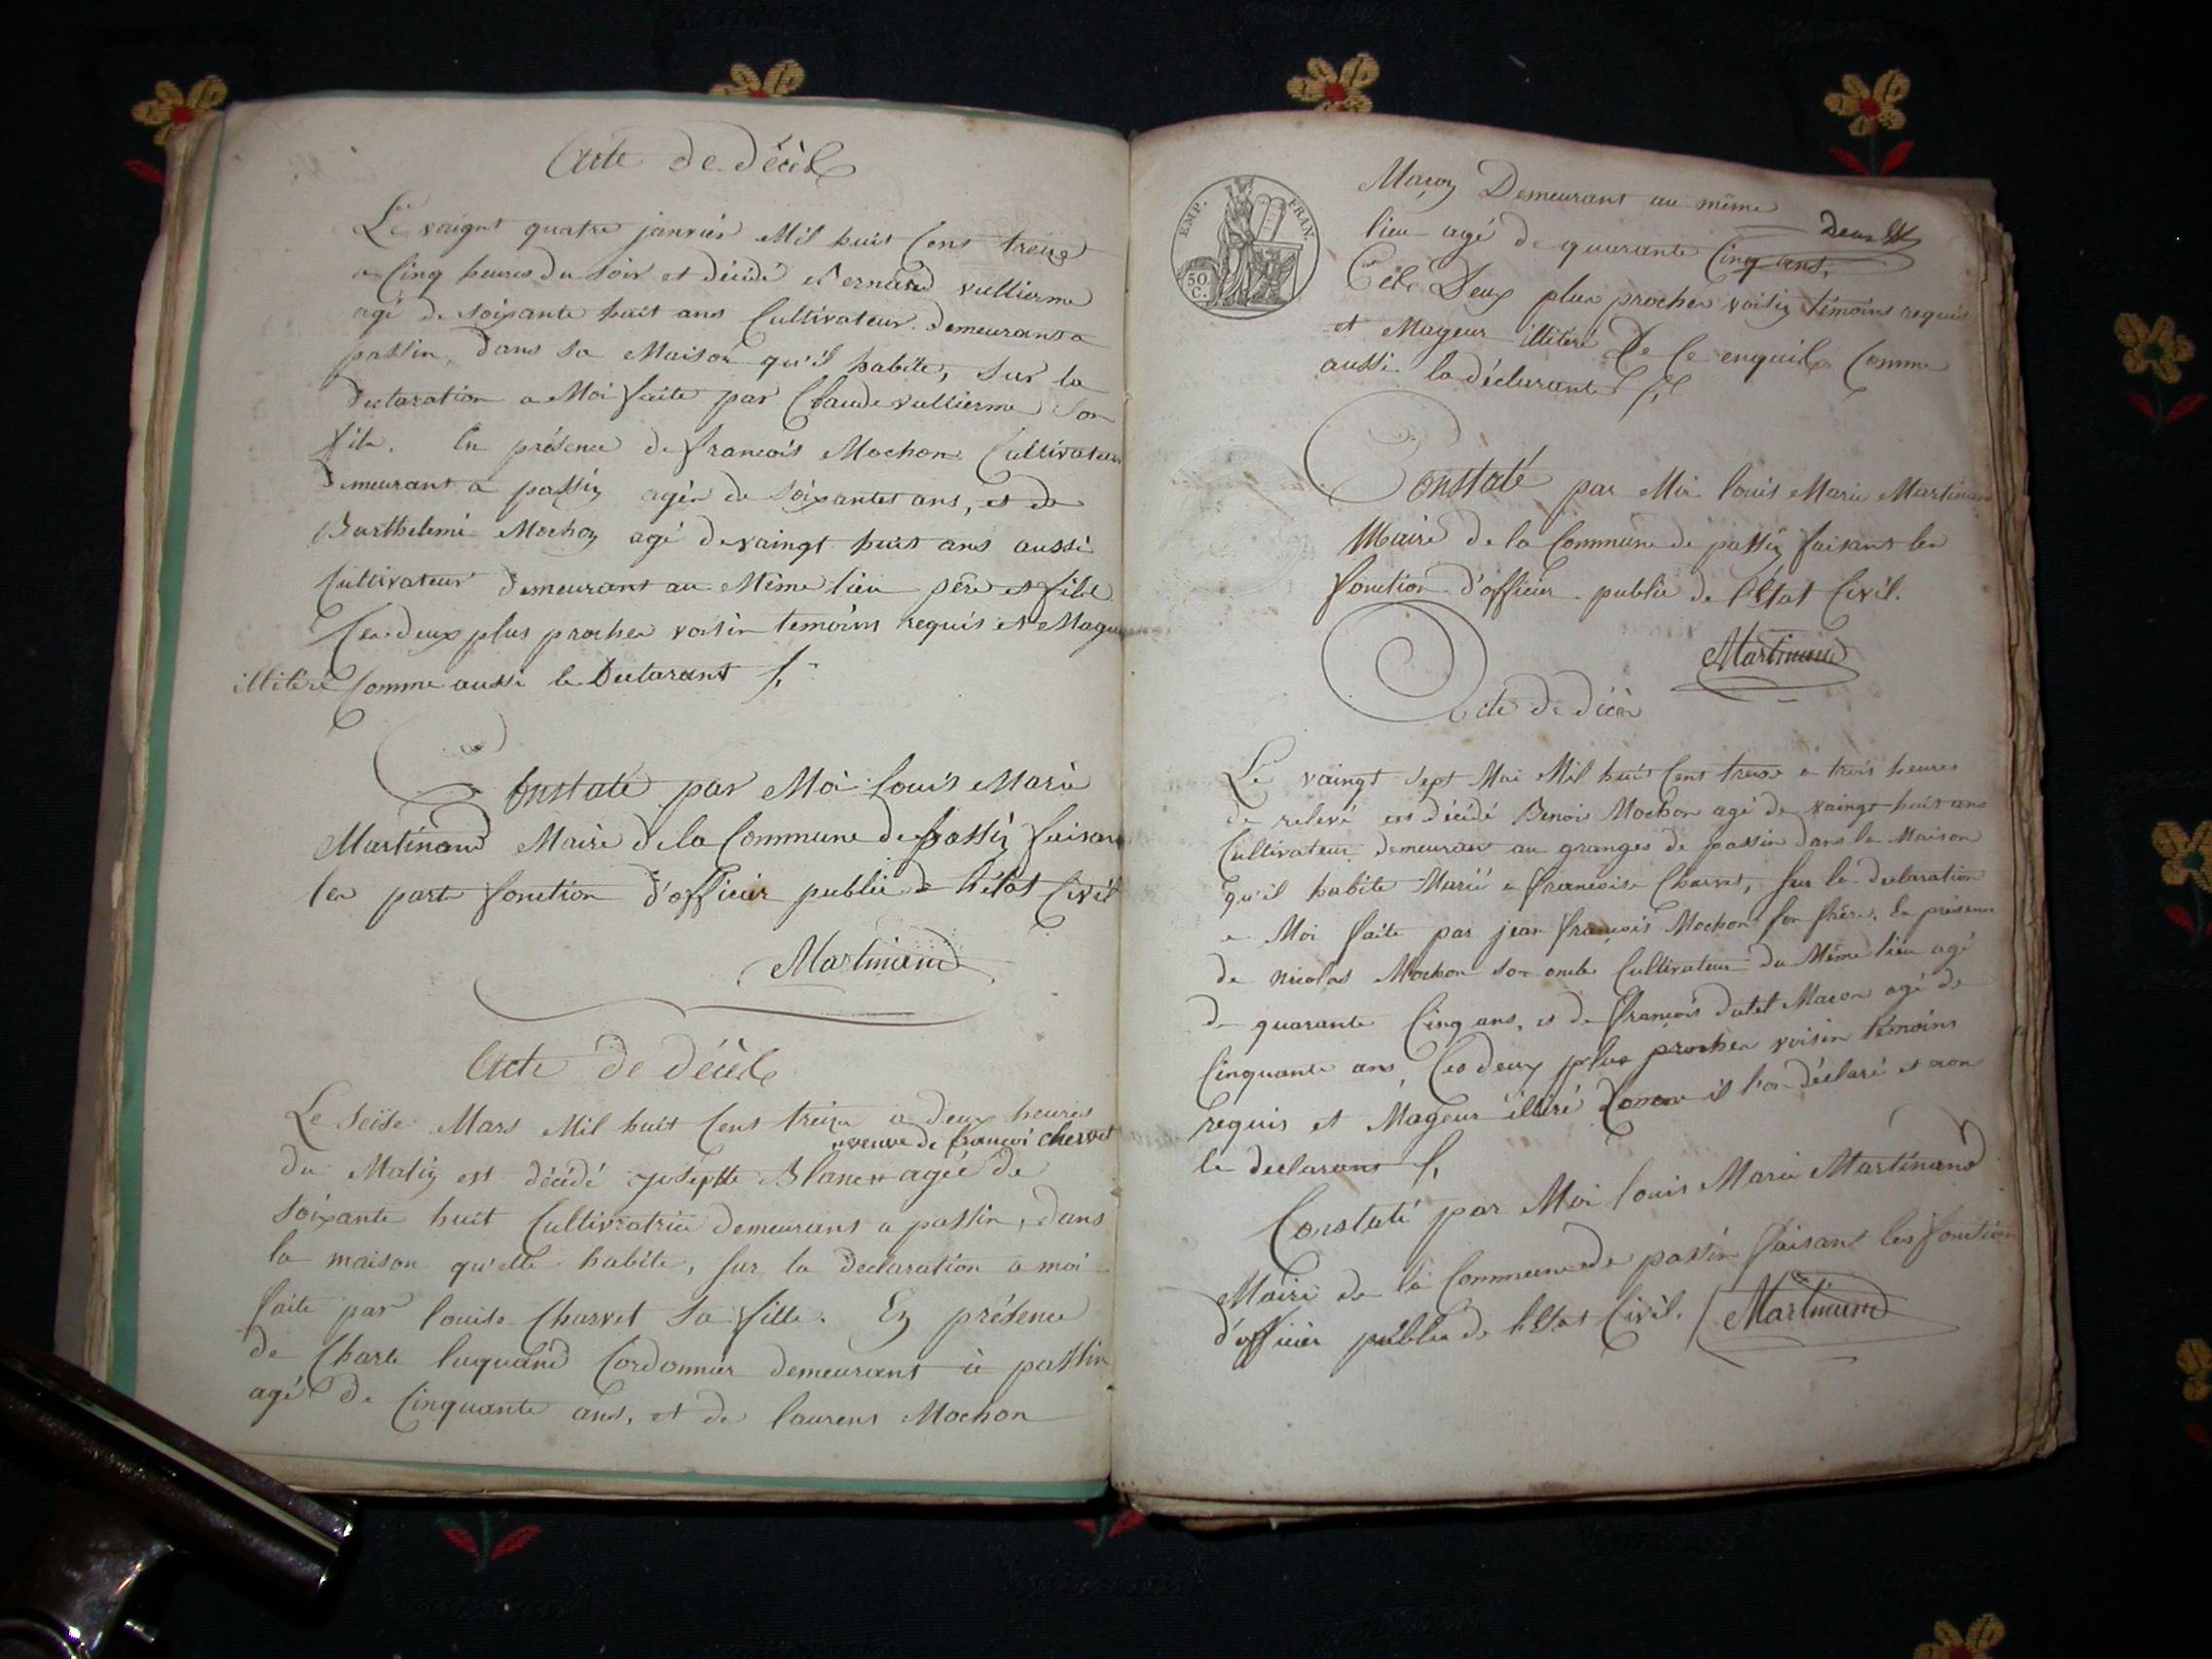 Acte de décès
Le vaignt quatre janvier Mil huit Cent treize
a Cinq heures du soir est décédé Bernard vullierme
agé de soixante huit ans Cultivateur demeurant a
passin, dans sa Maison qu'il habite, sur la
Declaration a Moi faite par Claude vullierme son
fils. En présence de françois Mochon Cultivateur
demeurant a passin agér de soixantes ans, et de
Barthelemi Mochon agé de vaingt huit ans aussi
Cultivateur demeurant au Même lieu père et fils
Ces deux plus procher voisin temoins requis et Mageur
illitéré Comme aussi le Declarant
Constaté par Moi Louis Marie
Martinand Maire de la Commune de passin faisant
les parte fonction d'officier public de l'état Civil
Martinand
Acte de décès
Le seise Mars Mil huit Cent treize a deux heures
veuve de françoi chervet
du Matin est décédé josephte Blanc agée de
soixante huit Cultivatrice demeurant a passin, dans
la maison qu'elle habite, sur la declaration a moi
faite par louise Charvet sa fille. En présence
de Charle luquand Cordonnier demeurant à passin
agé de Cinquante ans, et de laurent Mochon
EMP. FRAN.
50 C.
Maçon Demeurant au même
deux
lieu agé de quarante Cinq ans,
Ces Deux plus procher voisin témoins requis
et Mageur illiteré De ce enquis Comme
aussi la déclarante
Constaté par Moi louis Marie Martinand
Maire de la Commune de passin faisant les
fonction d'officier public de l'Etat Civil.
Martinand
Acte de décès
Le vaingt sept Mai Mil huit Cent treize a trois heures
de relevé est décédé Benoi Mochon agé de vaingt huit ans
Cultivateur demeurant au granges de passin dans la Maison
qu'il habite Marié a françoise Charvet, sur la declaration
a Moi faite par jean françois Mochon son frère, En présence
de nicolas Mochon son oncle Cultivateur du Même lieu agé
de quarante Cinq ans, et de françois dutel Macon agé de
Cinquante ans Ces deux plus procher voisin témoins
requis et Mageur illiré Comme il l'on déclaré et non
le declarant
Constaté par Moi louis Marie Martinand
Maire de la Commune de passin faisant les fonction
d'officier public de l'Etat Civil. Martinand